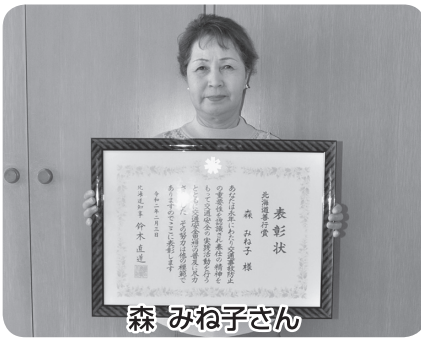 表彰状
北海道善行賞
森 みね子 様
あなたは永年にわたり交通事故防止
の重要性を認識され奉仕の精神を
もって交通安全の実践活動を行う
とともに交通安全思想の普及に尽力
されました その努力は他の模範で
ありますのでここに表彰します
令和二年二月三日
北海道知事 鈴木直道
森 みね子さん